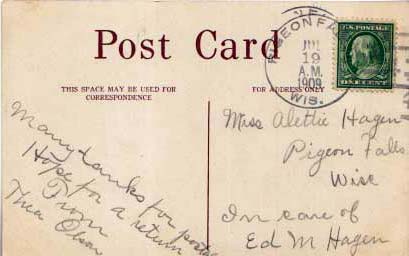 Post Card
THIS SPACE MAY BE USED FOR
CORRESPONDENCE
FOR ADDRESS ONLY
PIGEON FA
JUL
19
A.M.
1909
WIS.
U.S. POSTAGE
ONE CENT
Many tanks for postal
Hope for a return
From
Thea Olson
Miss Alettie Hagen
Pigeon Falls
Wisc
In care of
Ed M Hagen